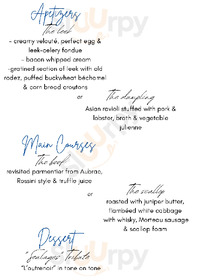 Apetizers
The leek
- creamy velouté, perfect egg &
leek-celery fondue
- bacon whipped cream
-gratined section of leek with old
rodez, puffed buckwheat béchamel
& corn bread croutons
or
The dumpling
Asian ravioli stuffed with pork &
lobster, broth & vegetable
julienne
Main Courses
The beef
revisited parmentier from Aubrac,
Rossini style & truffle juice
or
The scallop
roasted with juniper butter,
flambéed white cabbage
with whisky, Morteau sausage
& scallop foam
Dessert
"Soulages" Tribute
"L'outrenoir" in tone on tone